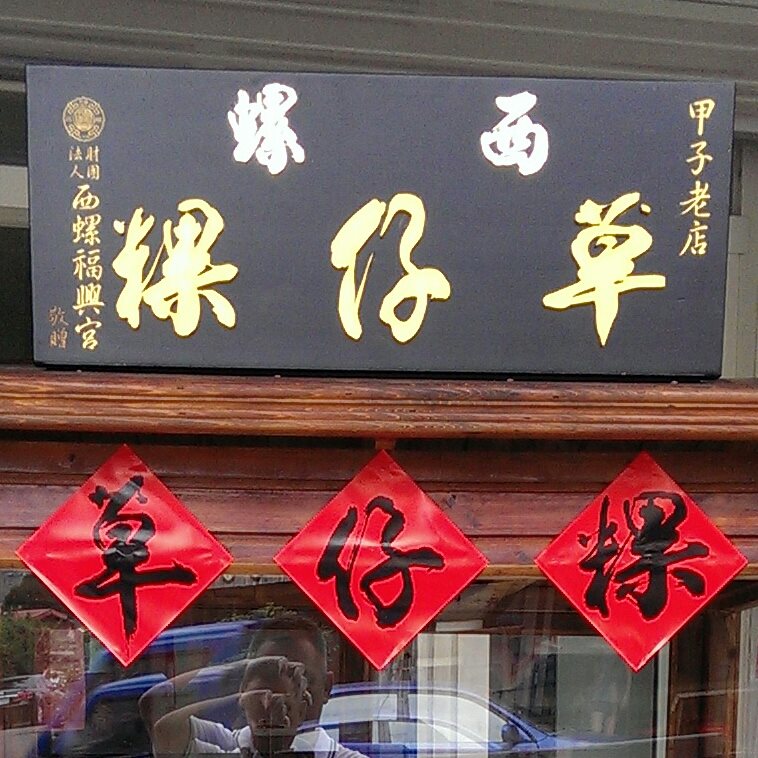 甲子老店
西螺
草仔粿
財團
法人
西螺福興宮
敬贈
草仔粿